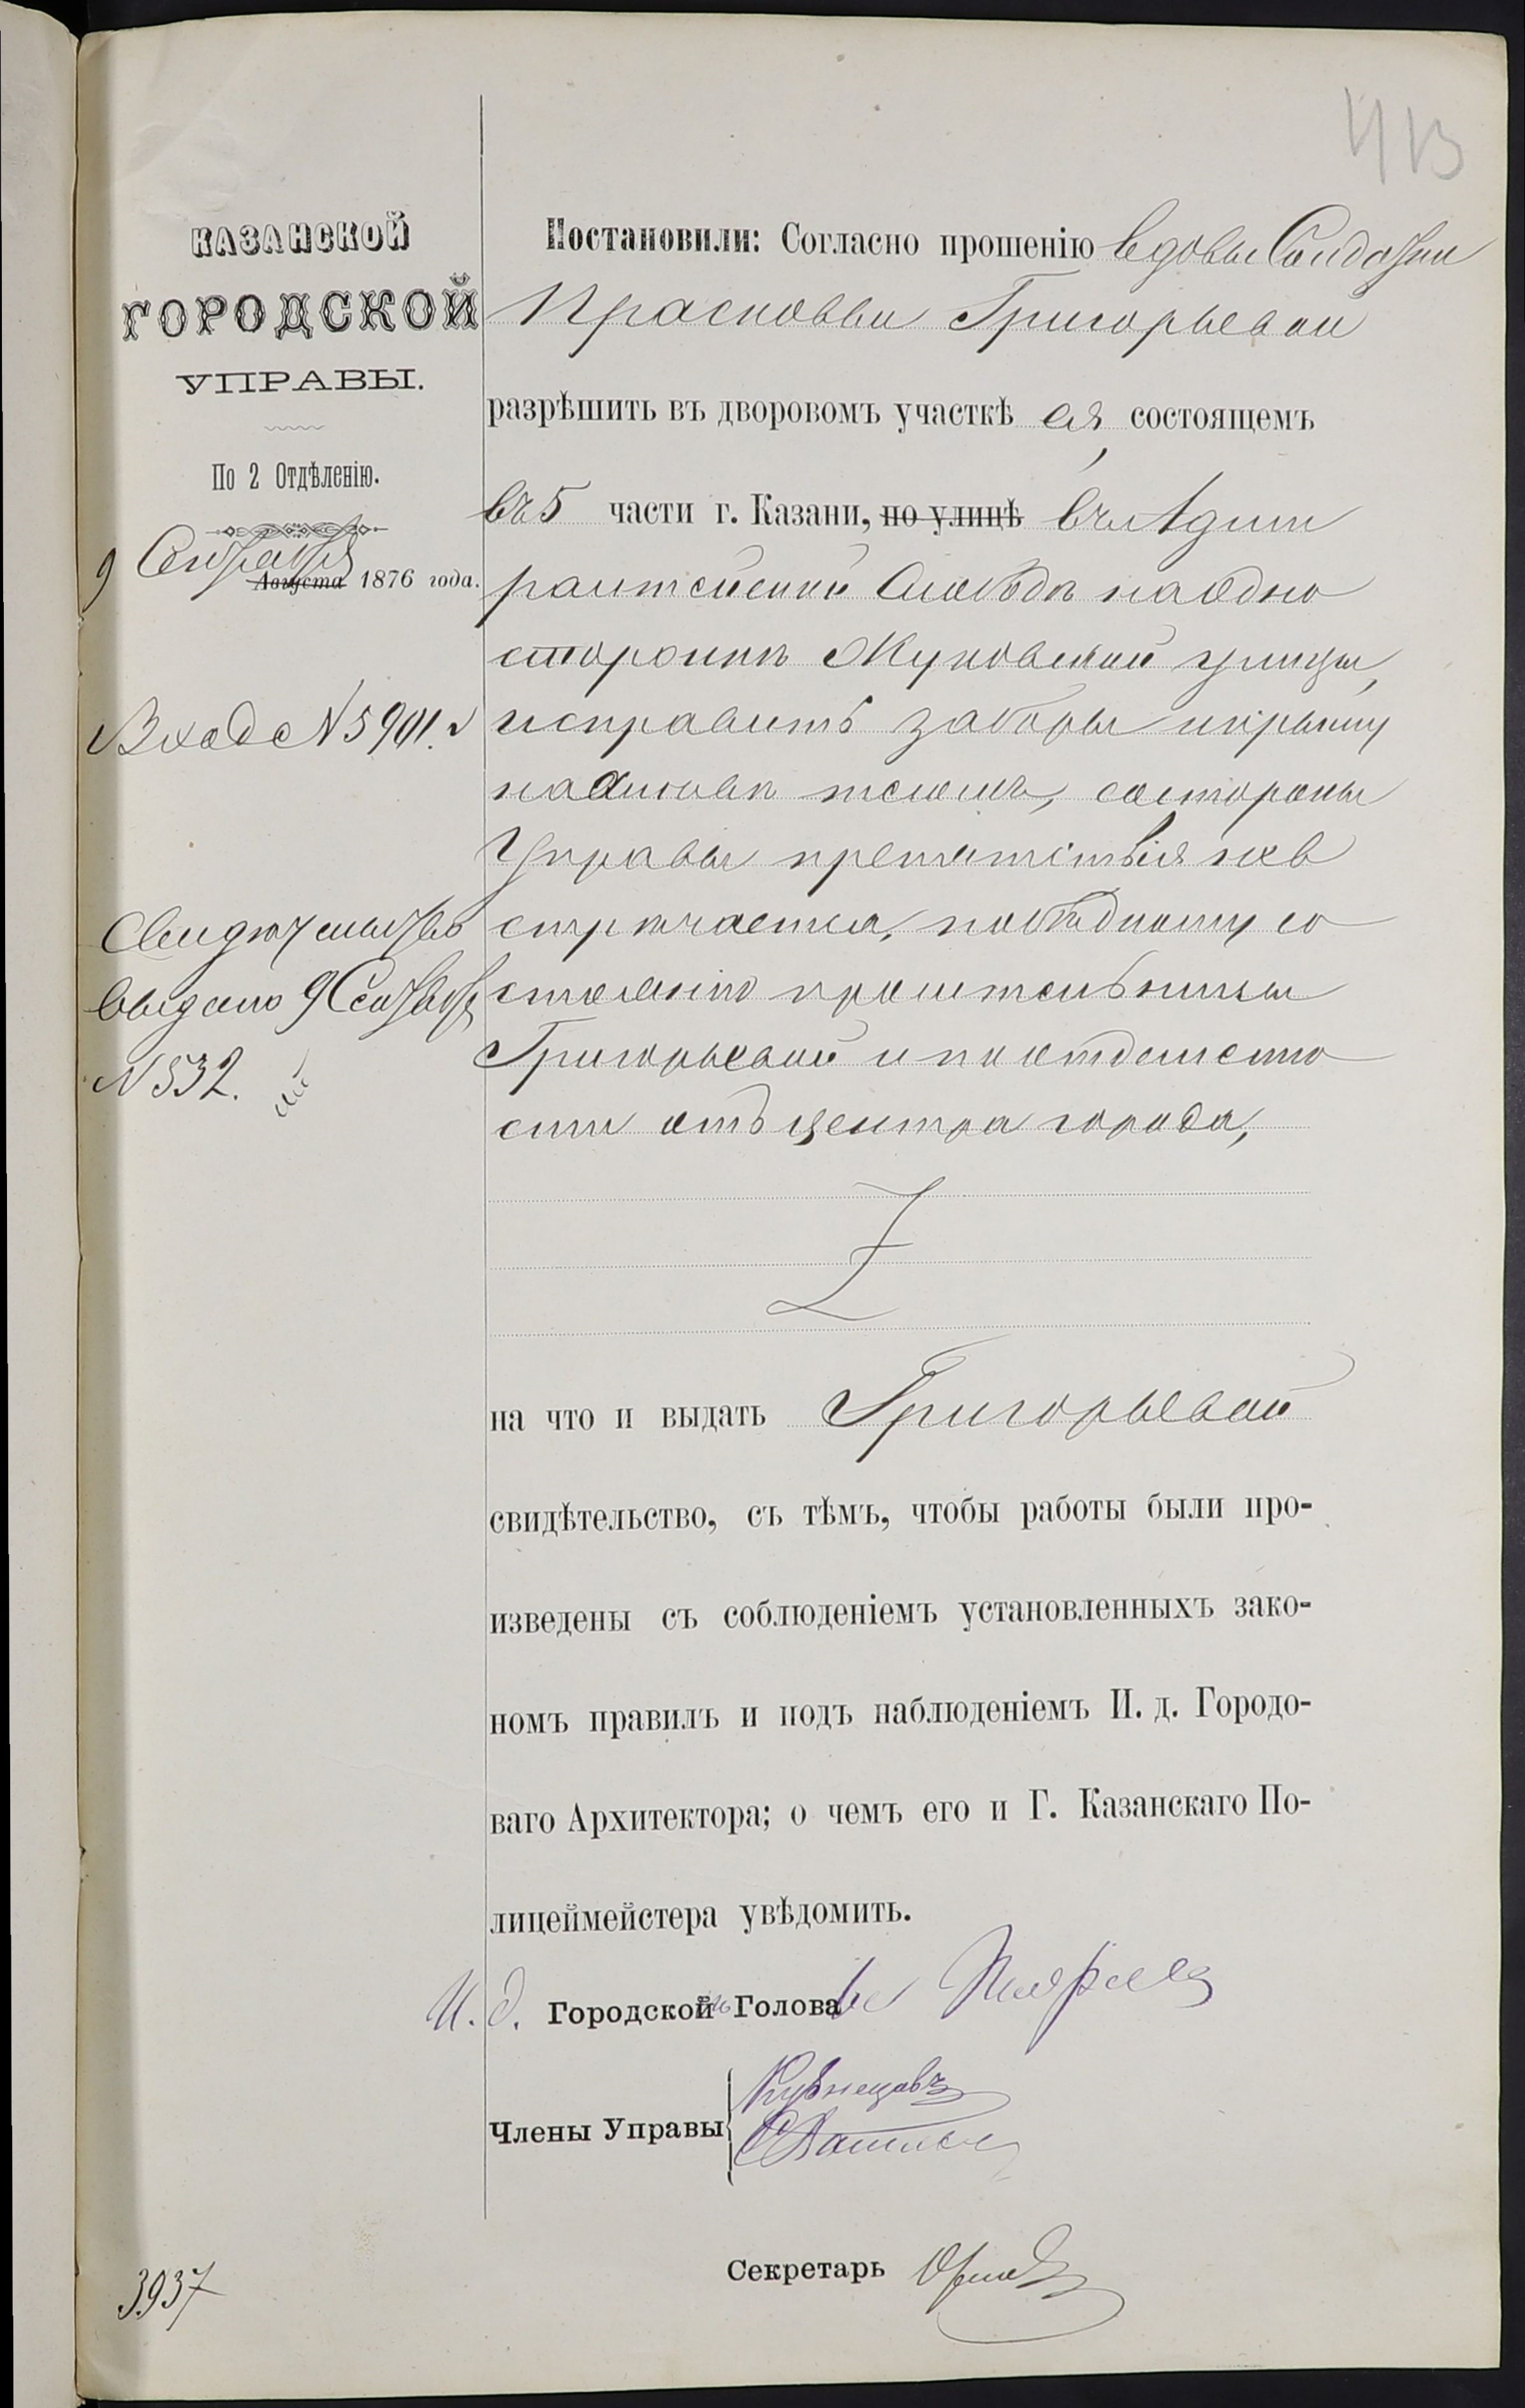 413
КАЗАНСКОЙ
ГОРОДСКОЙ
УПРАВЫ.
По 2 Отдѣленію.
9 Сентября
Августа 1876 года.
Входе N 5901.
Свидѣтельство
выдано 9 Сентября
N 532.
Постановили: Согласно прошенію вдовы Солдатки
Прасковьи Григорьевой
разрѣшить въ дворовомъ участкѣ ея, состоящемъ
въ 5 части г. Казани, по улицѣ въ Адми
ралтейской слободѣ на одно
сторонкѣ Жуковской улицы,
исправить заборы и крышу
на тесомъ, со стороны
Управы препятствія не в
стрѣчается, по бѣдному со
стоянію просительницы
Григорьевой и по отдаленно
сти отъ центра города,
на что и выдать Григорьевой
свидѣтельство, съ тѣмъ, чтобы работы были про-
изведены съ соблюденіемъ установленныхъ зако-
номъ правилъ и подъ наблюденіемъ И. д. Городо-
ваго Архитектора; о чемъ его и Г. Казанскаго По-
лицеймейстера увѣдомить.
И. д. Городской Голова
Члены Управы
Кузнецовъ
Секретарь
3937